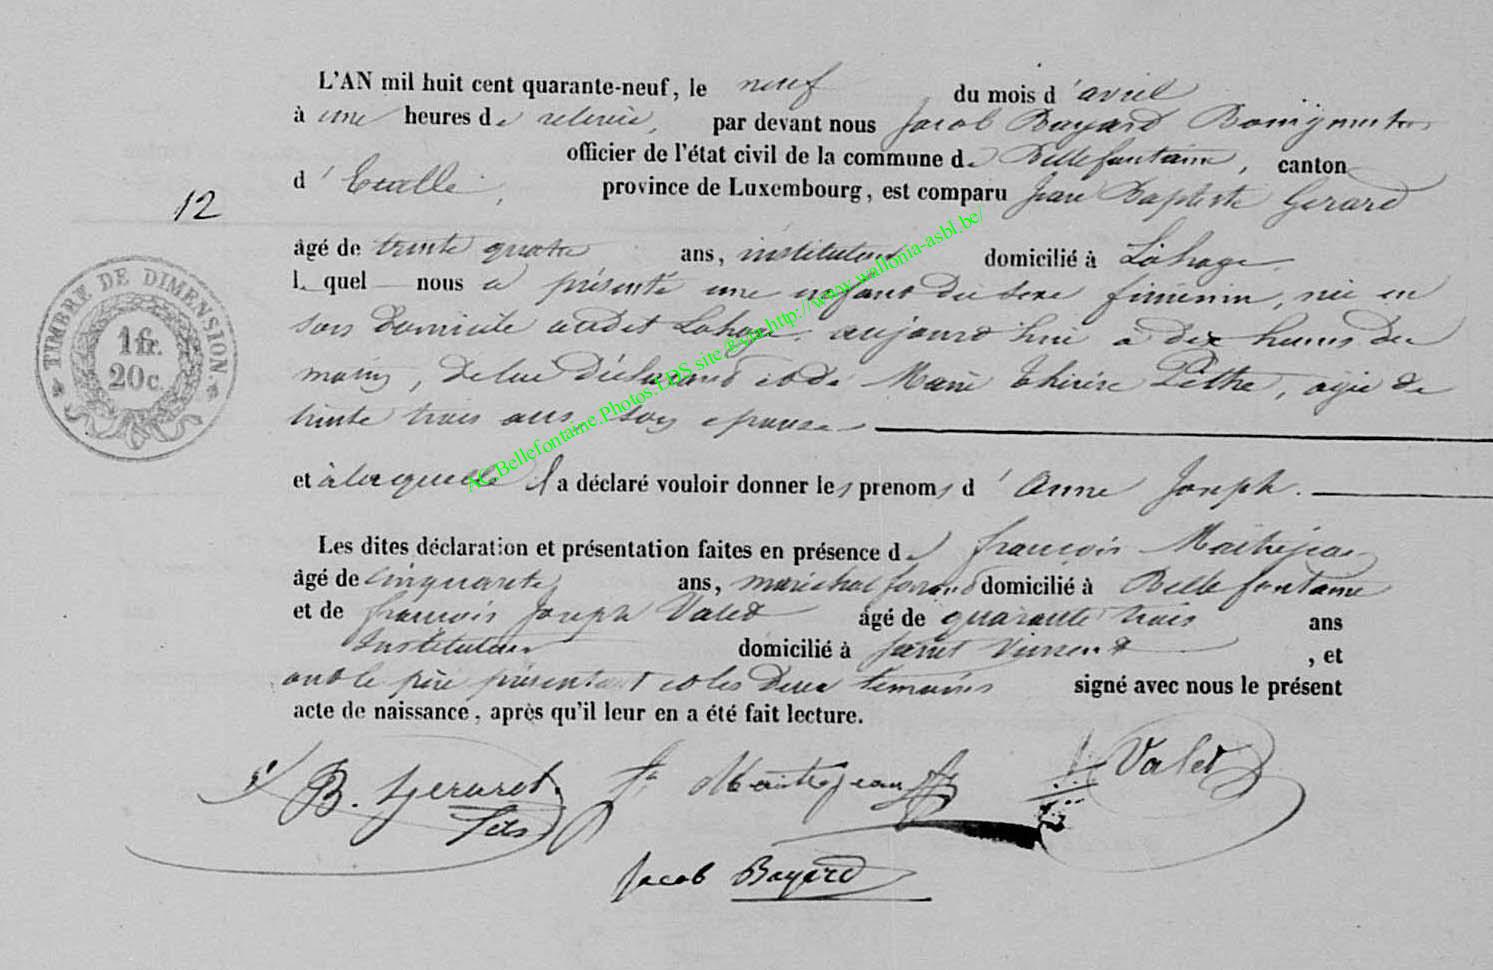 L'AN mil huit cent quarante-neuf, le neuf du mois d'avril
à une heures de relevée, par devant nous Jacob Bayard Bourgmestre
officier de l'état civil de la commune de Bellefontaine, canton
d'Etalle, province de Luxembourg, est comparu Jean Baptiste Gerard
12
âgé de trente quatre ans, instituteur domicilié à Lahage
lequel nous a présenté une enfant du sexe féminin, née en
son domicile audit Lahage aujourd'hui à dix heures du
matin, de lui déclarant et de Marie Thérese Pêthe, agée de
trente trois ans son epouse
et à laquelle il a déclaré vouloir donner les prenoms d'Anne Joseph.
Les dites déclaration et présentation faites en présence de françois Maitrejean
âgé de cinquante ans, maréchal ferrand domicilié à Bellefontaine
et de françois Joseph Valet âgé de quarante trois ans
Instituteur domicilié à saint Vincent, et
ont le père présentant et les deux témoins signé avec nous le présent
acte de naissance, après qu'il leur en a été fait lecture.
TIMBRE DE DIMENSION
1 fr.
20 c.
B. Gerard fils
fr Maitrejean
Valet
Jacob Bayard
AC Bellefontaine.Photos LDS site
http://www.wallonia-asbl.be/